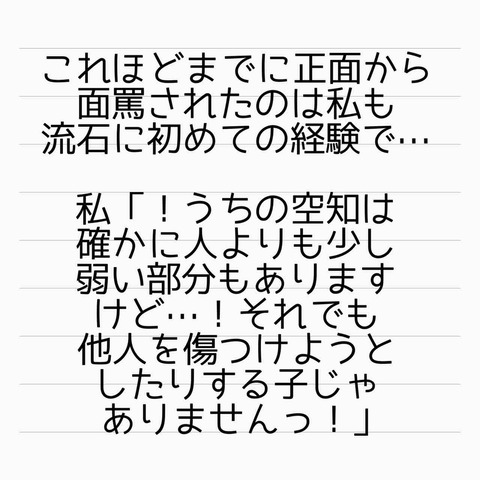 これほどまでに正面から
面罵されたのは私も
流石に初めての経験で…
私「！うちの空知は
確かに人よりも少し
弱い部分もあります
けど…！それでも
他人を傷つけようと
したりする子じゃ
ありませんっ！」